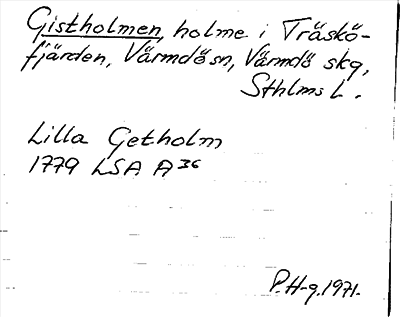 Gistholmen, holme i Träskö-
fjärden, Värmdösn, Värmdö skg,
Sthlms L.
Lilla Getholm
1779 LSA A 36
P.H-g. 1971.